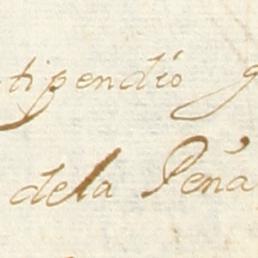 stipendio g
dela Peña